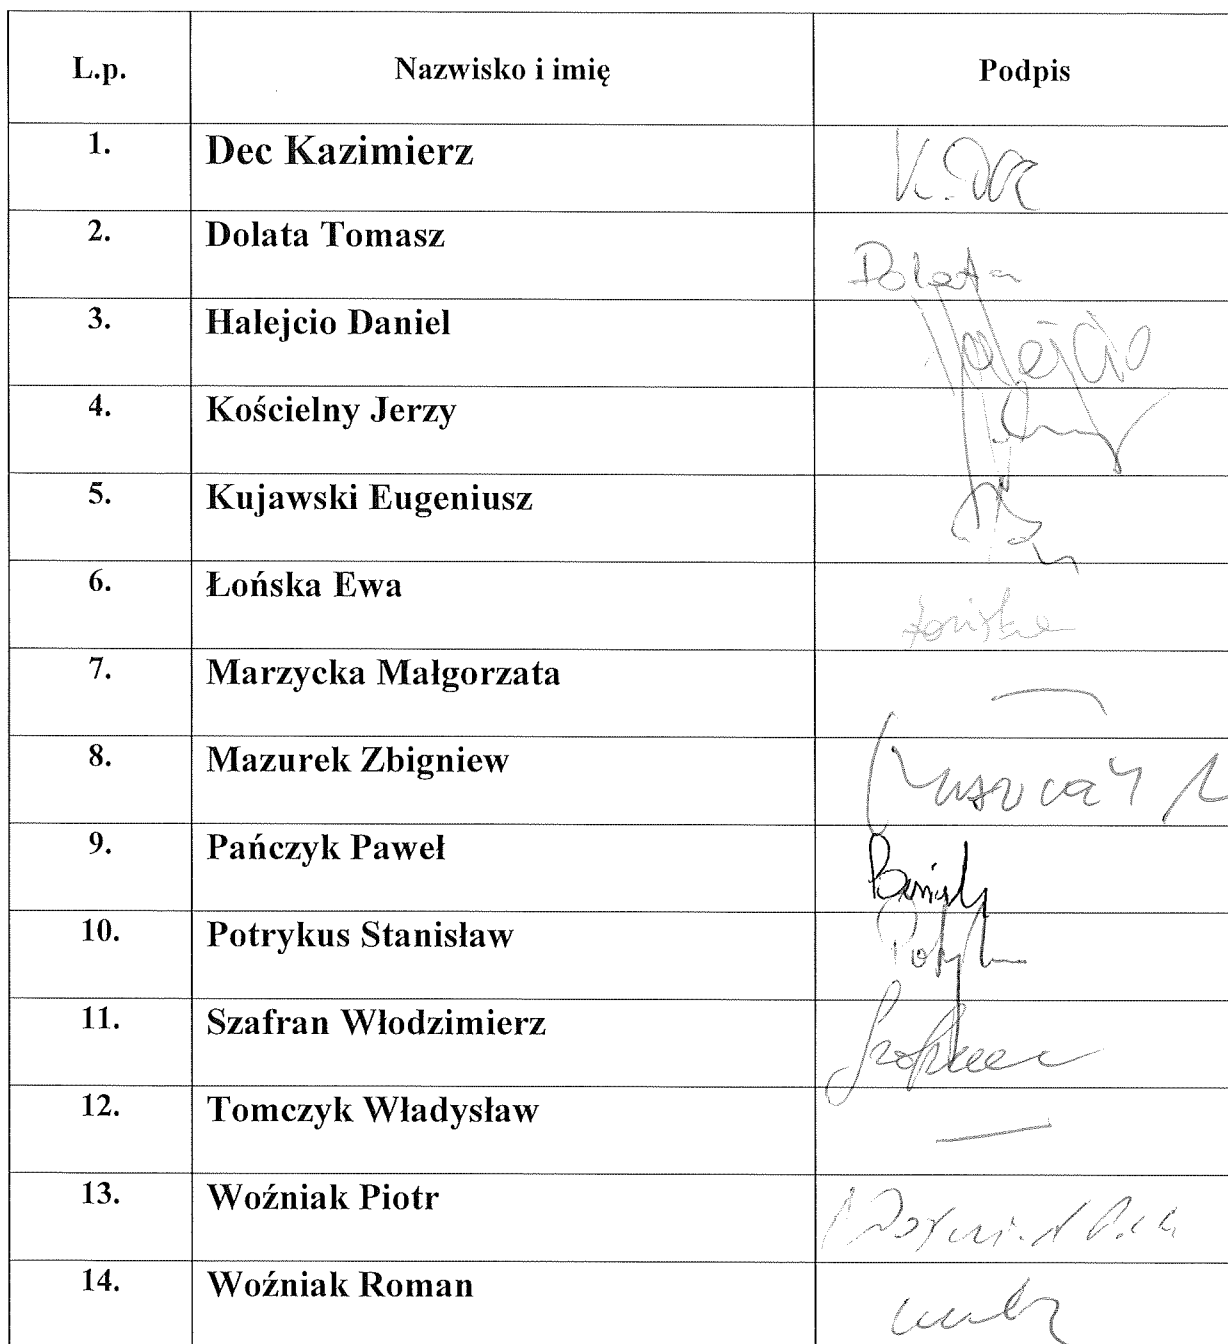 L.p. Nazwisko i imię Podpis
1. Dec Kazimierz K. Dec
2. Dolata Tomasz Dolata
3. Halejcio Daniel Halejcio
4. Kościelny Jerzy
5. Kujawski Eugeniusz
6. Łońska Ewa Łońska
7. Marzycka Małgorzata —
8. Mazurek Zbigniew
9. Pańczyk Paweł
10. Potrykus Stanisław
11. Szafran Włodzimierz
12. Tomczyk Władysław —
13. Woźniak Piotr
14. Woźniak Roman